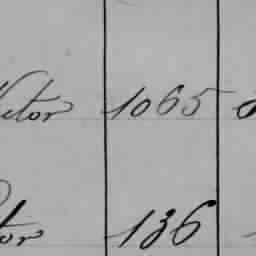 Victor 1065
tor 136